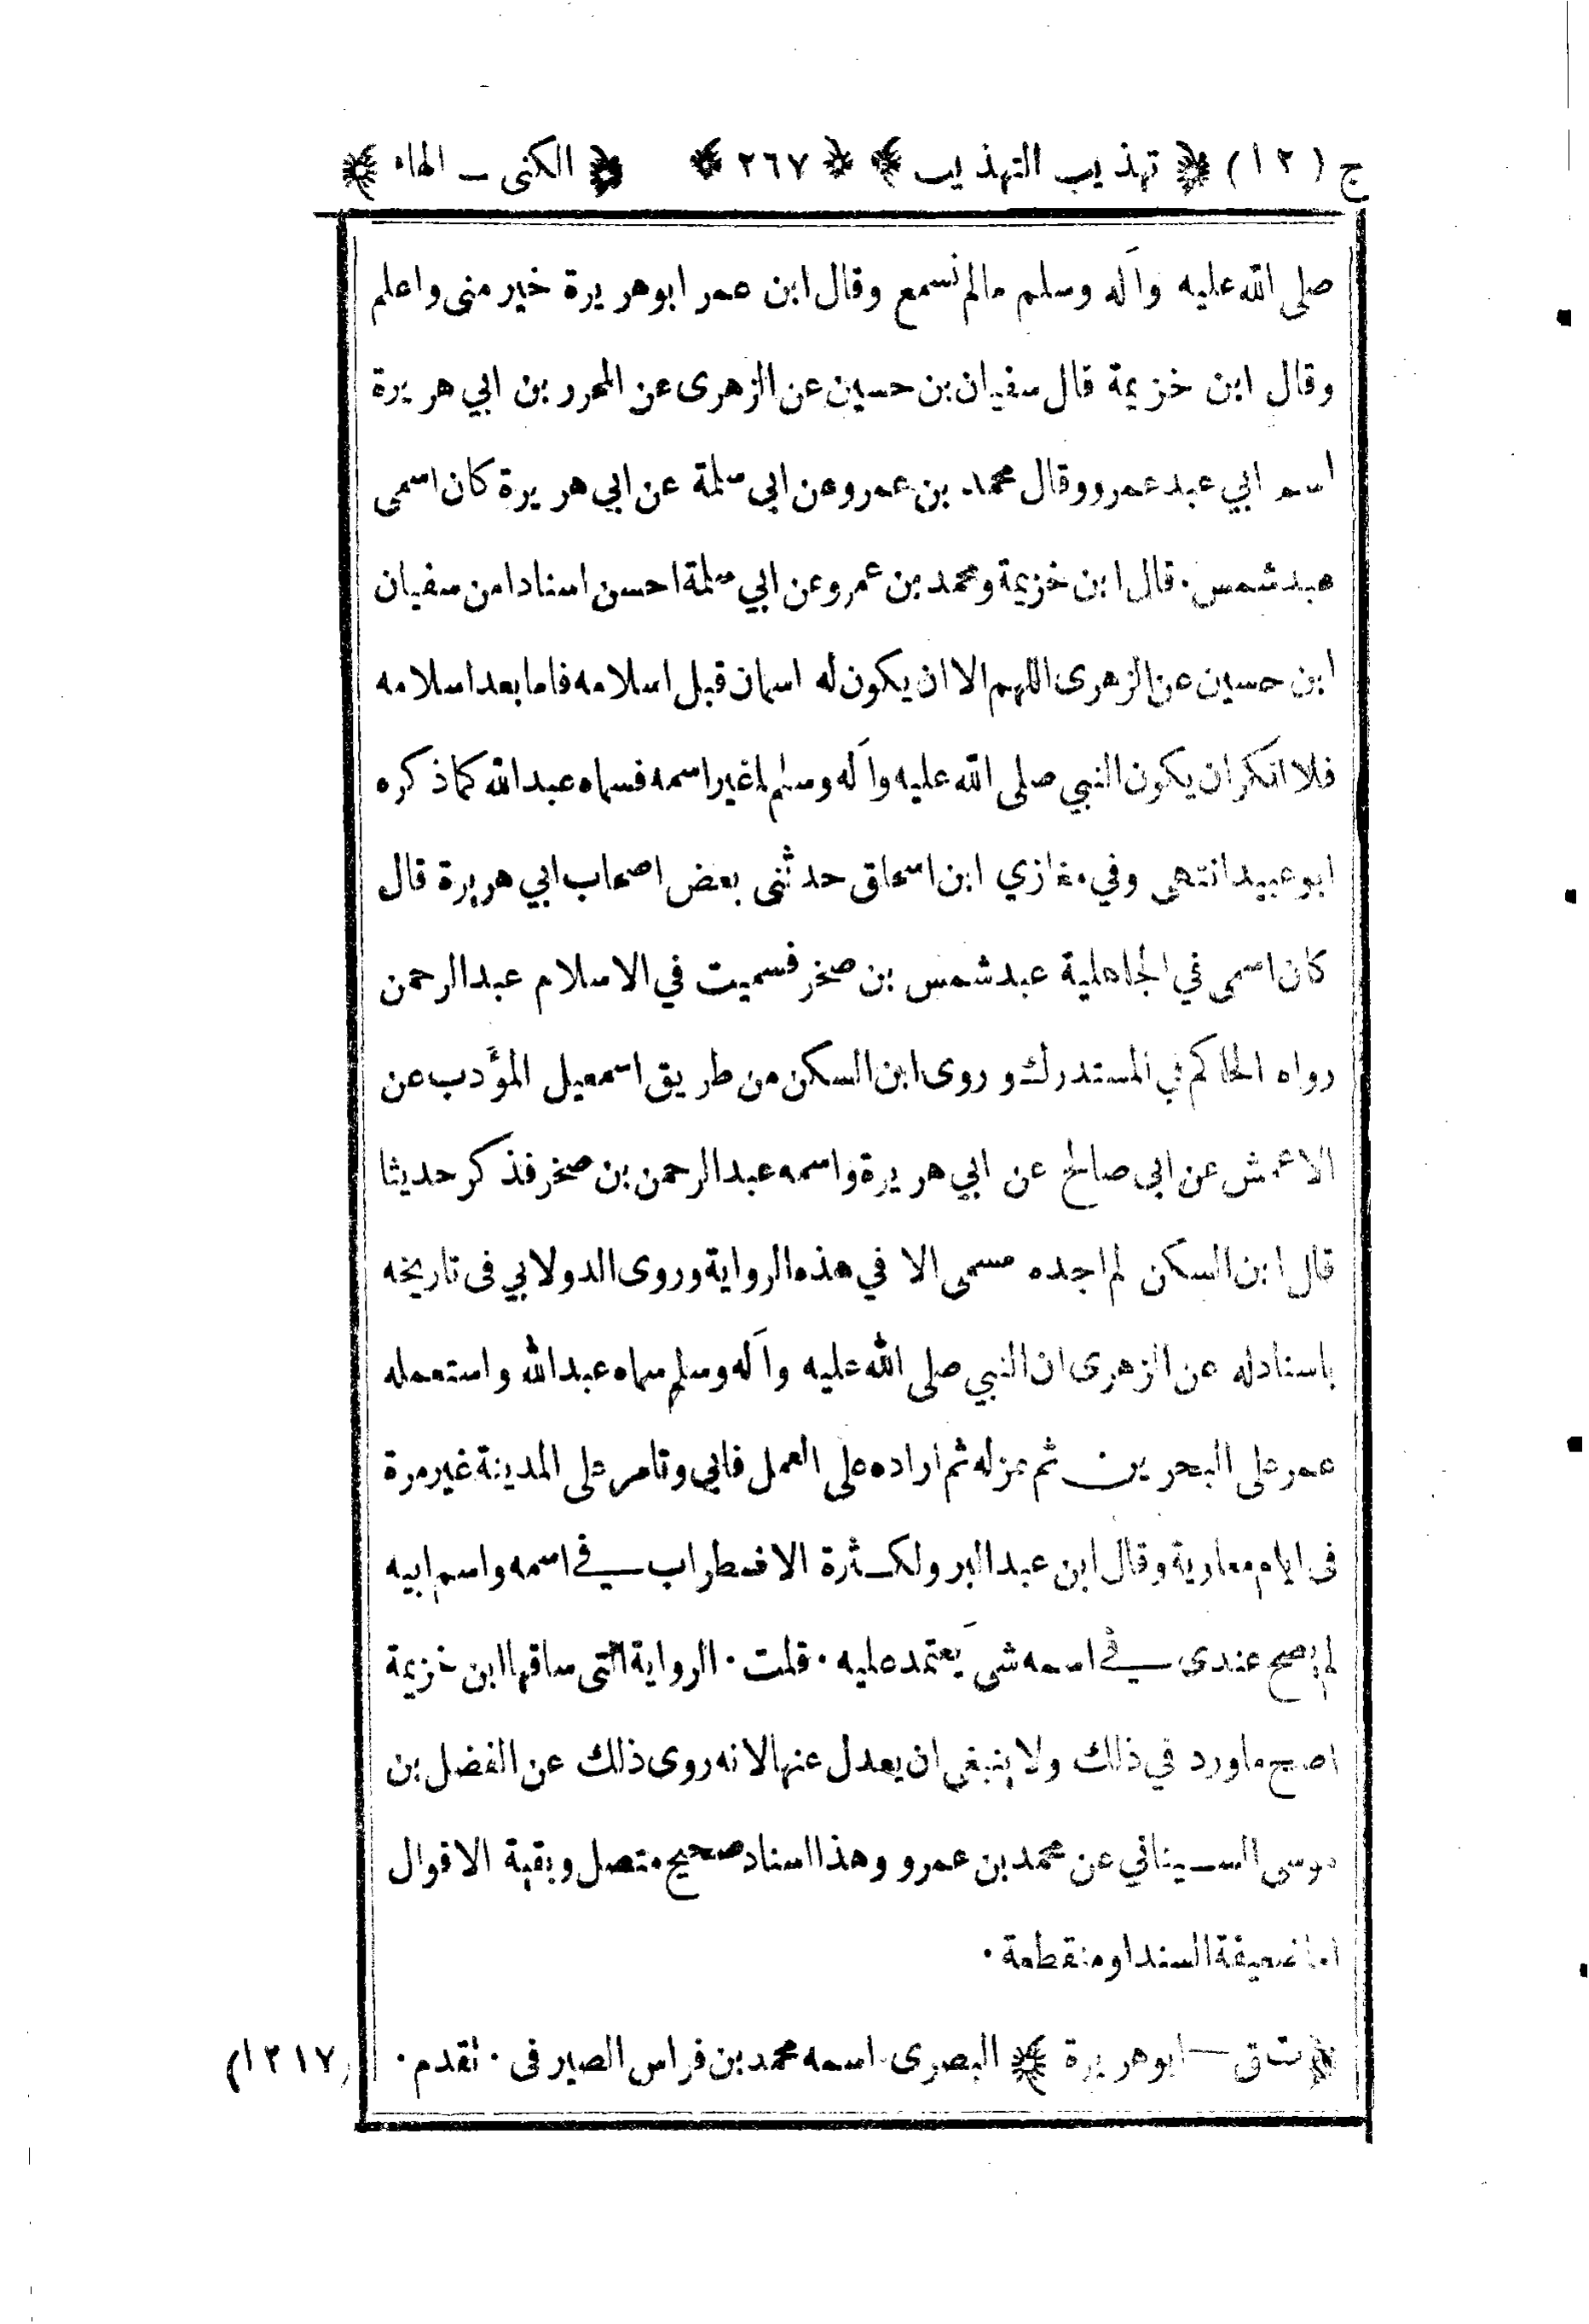 ج (١٢) ﴿ تهذيب التهذيب ﴾ ﴿ ٢٦٧ ﴾ ﴿ الكنى ـ الهاء ﴾
صلى الله عليه وآله وسلم مالم نسمع وقال ابن عمر ابوهريرة خير منى واعلم
وقال ابن خزيمة قال سفيان بن حسين عن الزهرى عن المحرر بن ابي هريرة
اسم ابي عبد عمرو وقال محمد بن عمرو عن ابي سلمة عن ابي هريرة كان اسمى
عبد شمس ٠ قال ابن خزيمة ومحمد بن عمرو عن ابي سلمة احسن اسنادا من سفيان
ابن حسين عن الزهرى اللهم الا ان يكون له اسمان قبل اسلامه فاما بعد اسلامه
فلا انكر ان يكون النبي صلى الله عليه وآله وسلم لما غير اسمه فسماه عبد الله كما ذكره
ابو عبيد انتهى وفي مغازي ابن اسحاق حدثنى بعض اصحاب ابي هريرة قال
كان اسمى في الجاهلية عبد شمس بن صخر فسميت في الاسلام عبد الرحمن
رواه الحاكم في المستدرك وروى ابن السكن من طريق اسمعيل المؤدب عن
الاعمش عن ابى صالح عن ابي هريرة واسمه عبد الرحمن بن صخر فذكر حديثا
قال ابن السكن لم اجده مسمى الا في هذه الرواية وروى الدولابي فى تاريخه
باسناد له عن الزهرى ان النبي صلى الله عليه وآله وسلم سماه عبد الله واستعمله
عمر على البحرين ثم عزله ثم اراده على العمل فابى وتامر على المدينة غير مرة
فى ايام معاوية وقال ابن عبد البر ولكثرة الاضطراب في اسمه واسم ابيه
لم يصح عندى في اسمه شئ يعتمد عليه ٠ قلت ٠ الرواية التى ساقها ابن خزيمة
اصح ماورد في ذلك ولا ينبغى ان يعدل عنها لانه روى ذلك عن الفضل بن
موسى السيناني عن محمد بن عمرو وهذا اسناد صحيح متصل وبقية الاقوال
اما ضعيفة السند او منقطعة ٠
﴿ ت ق — ابو هريرة ﴾ البصرى ٠ اسمه محمد بن فراس الصيرفى ٠ تقدم ٠ (١٢١٧م)